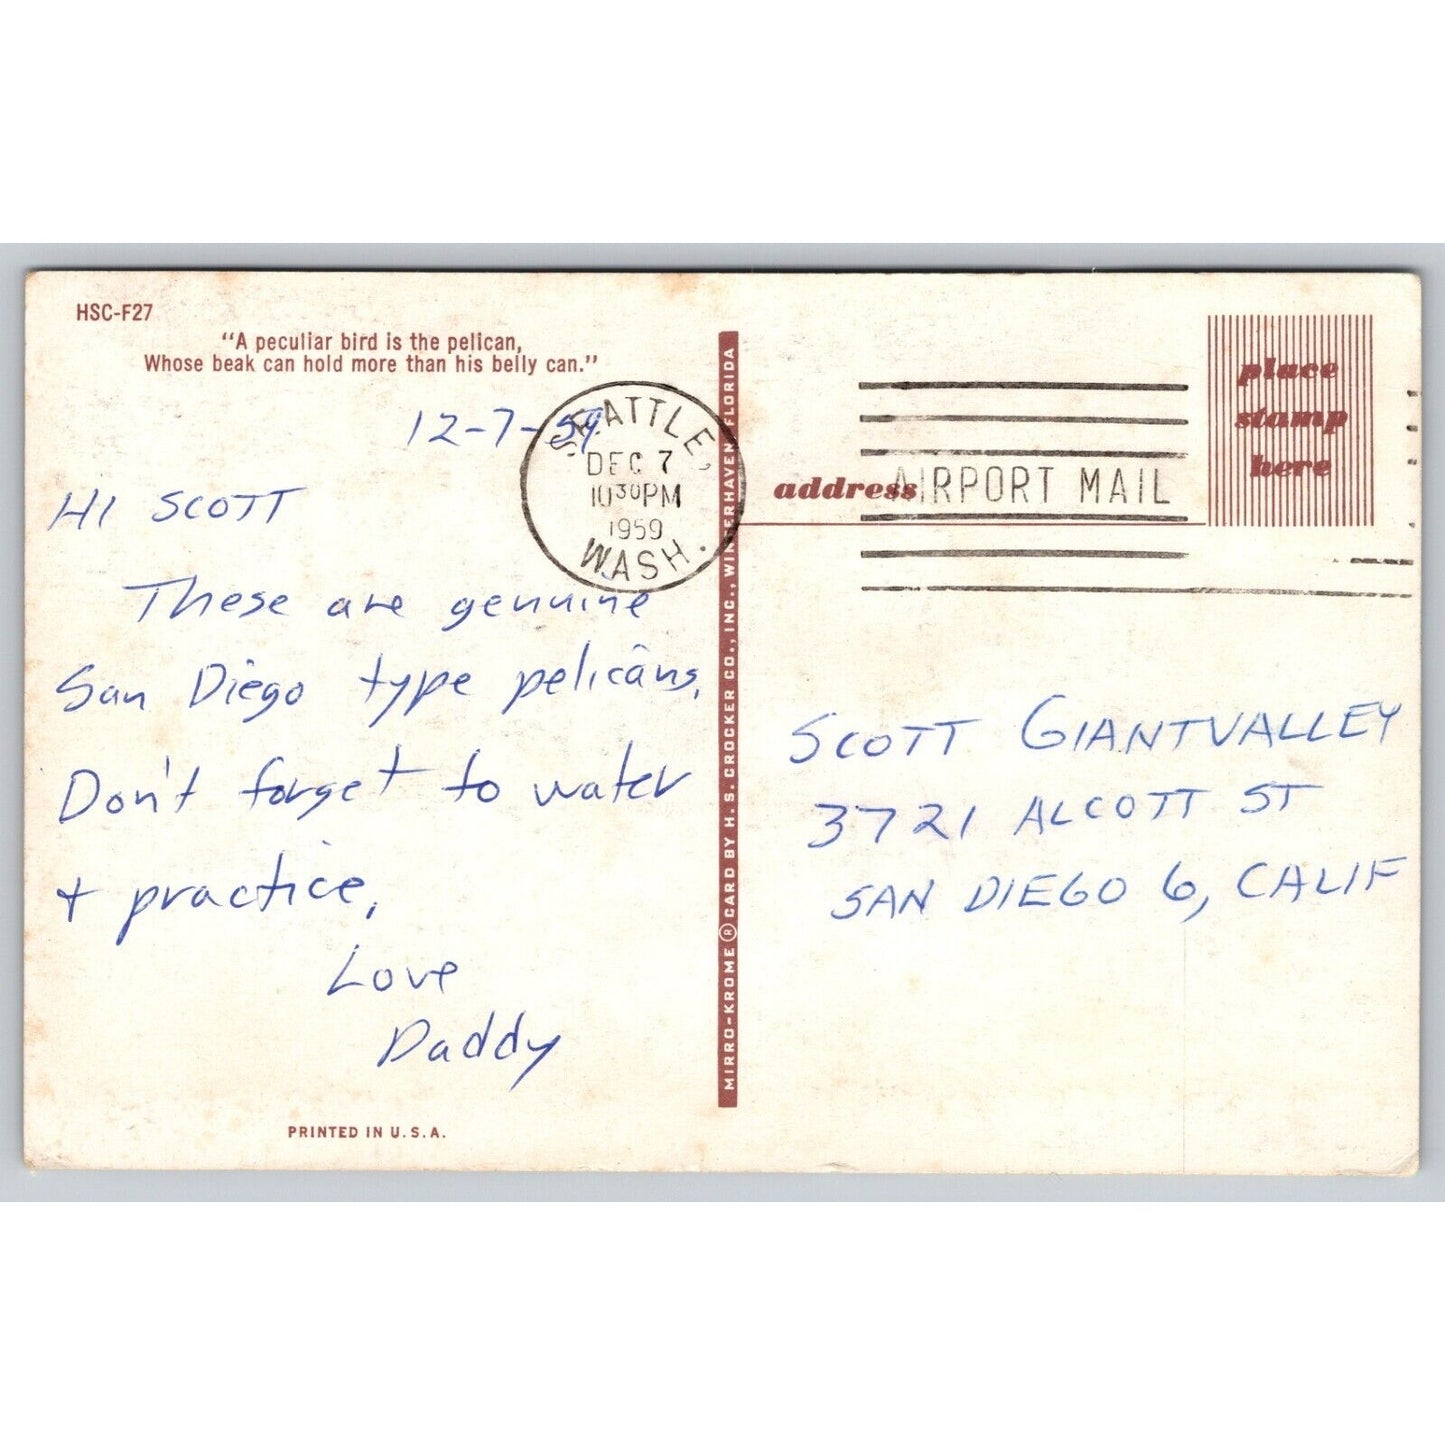 HSC-F27
"A peculiar bird is the pelican,
Whose beak can hold more than his belly can."
12-7-59
HI SCOTT
These are genuine
San Diego type pelicans.
Don't forget to water
+ practice,
Love
Daddy
PRINTED IN U.S.A.
MIRRO-KROME ® CARD BY H. S. CROCKER CO., INC., WINTERHAVEN, FLORIDA
SEATTLE,
DEC 7
10 30 PM
1959
WASH.
AIRPORT MAIL
place
stamp
here
address
SCOTT GIANTVALLEY
3721 ALCOTT ST
SAN DIEGO 6, CALIF